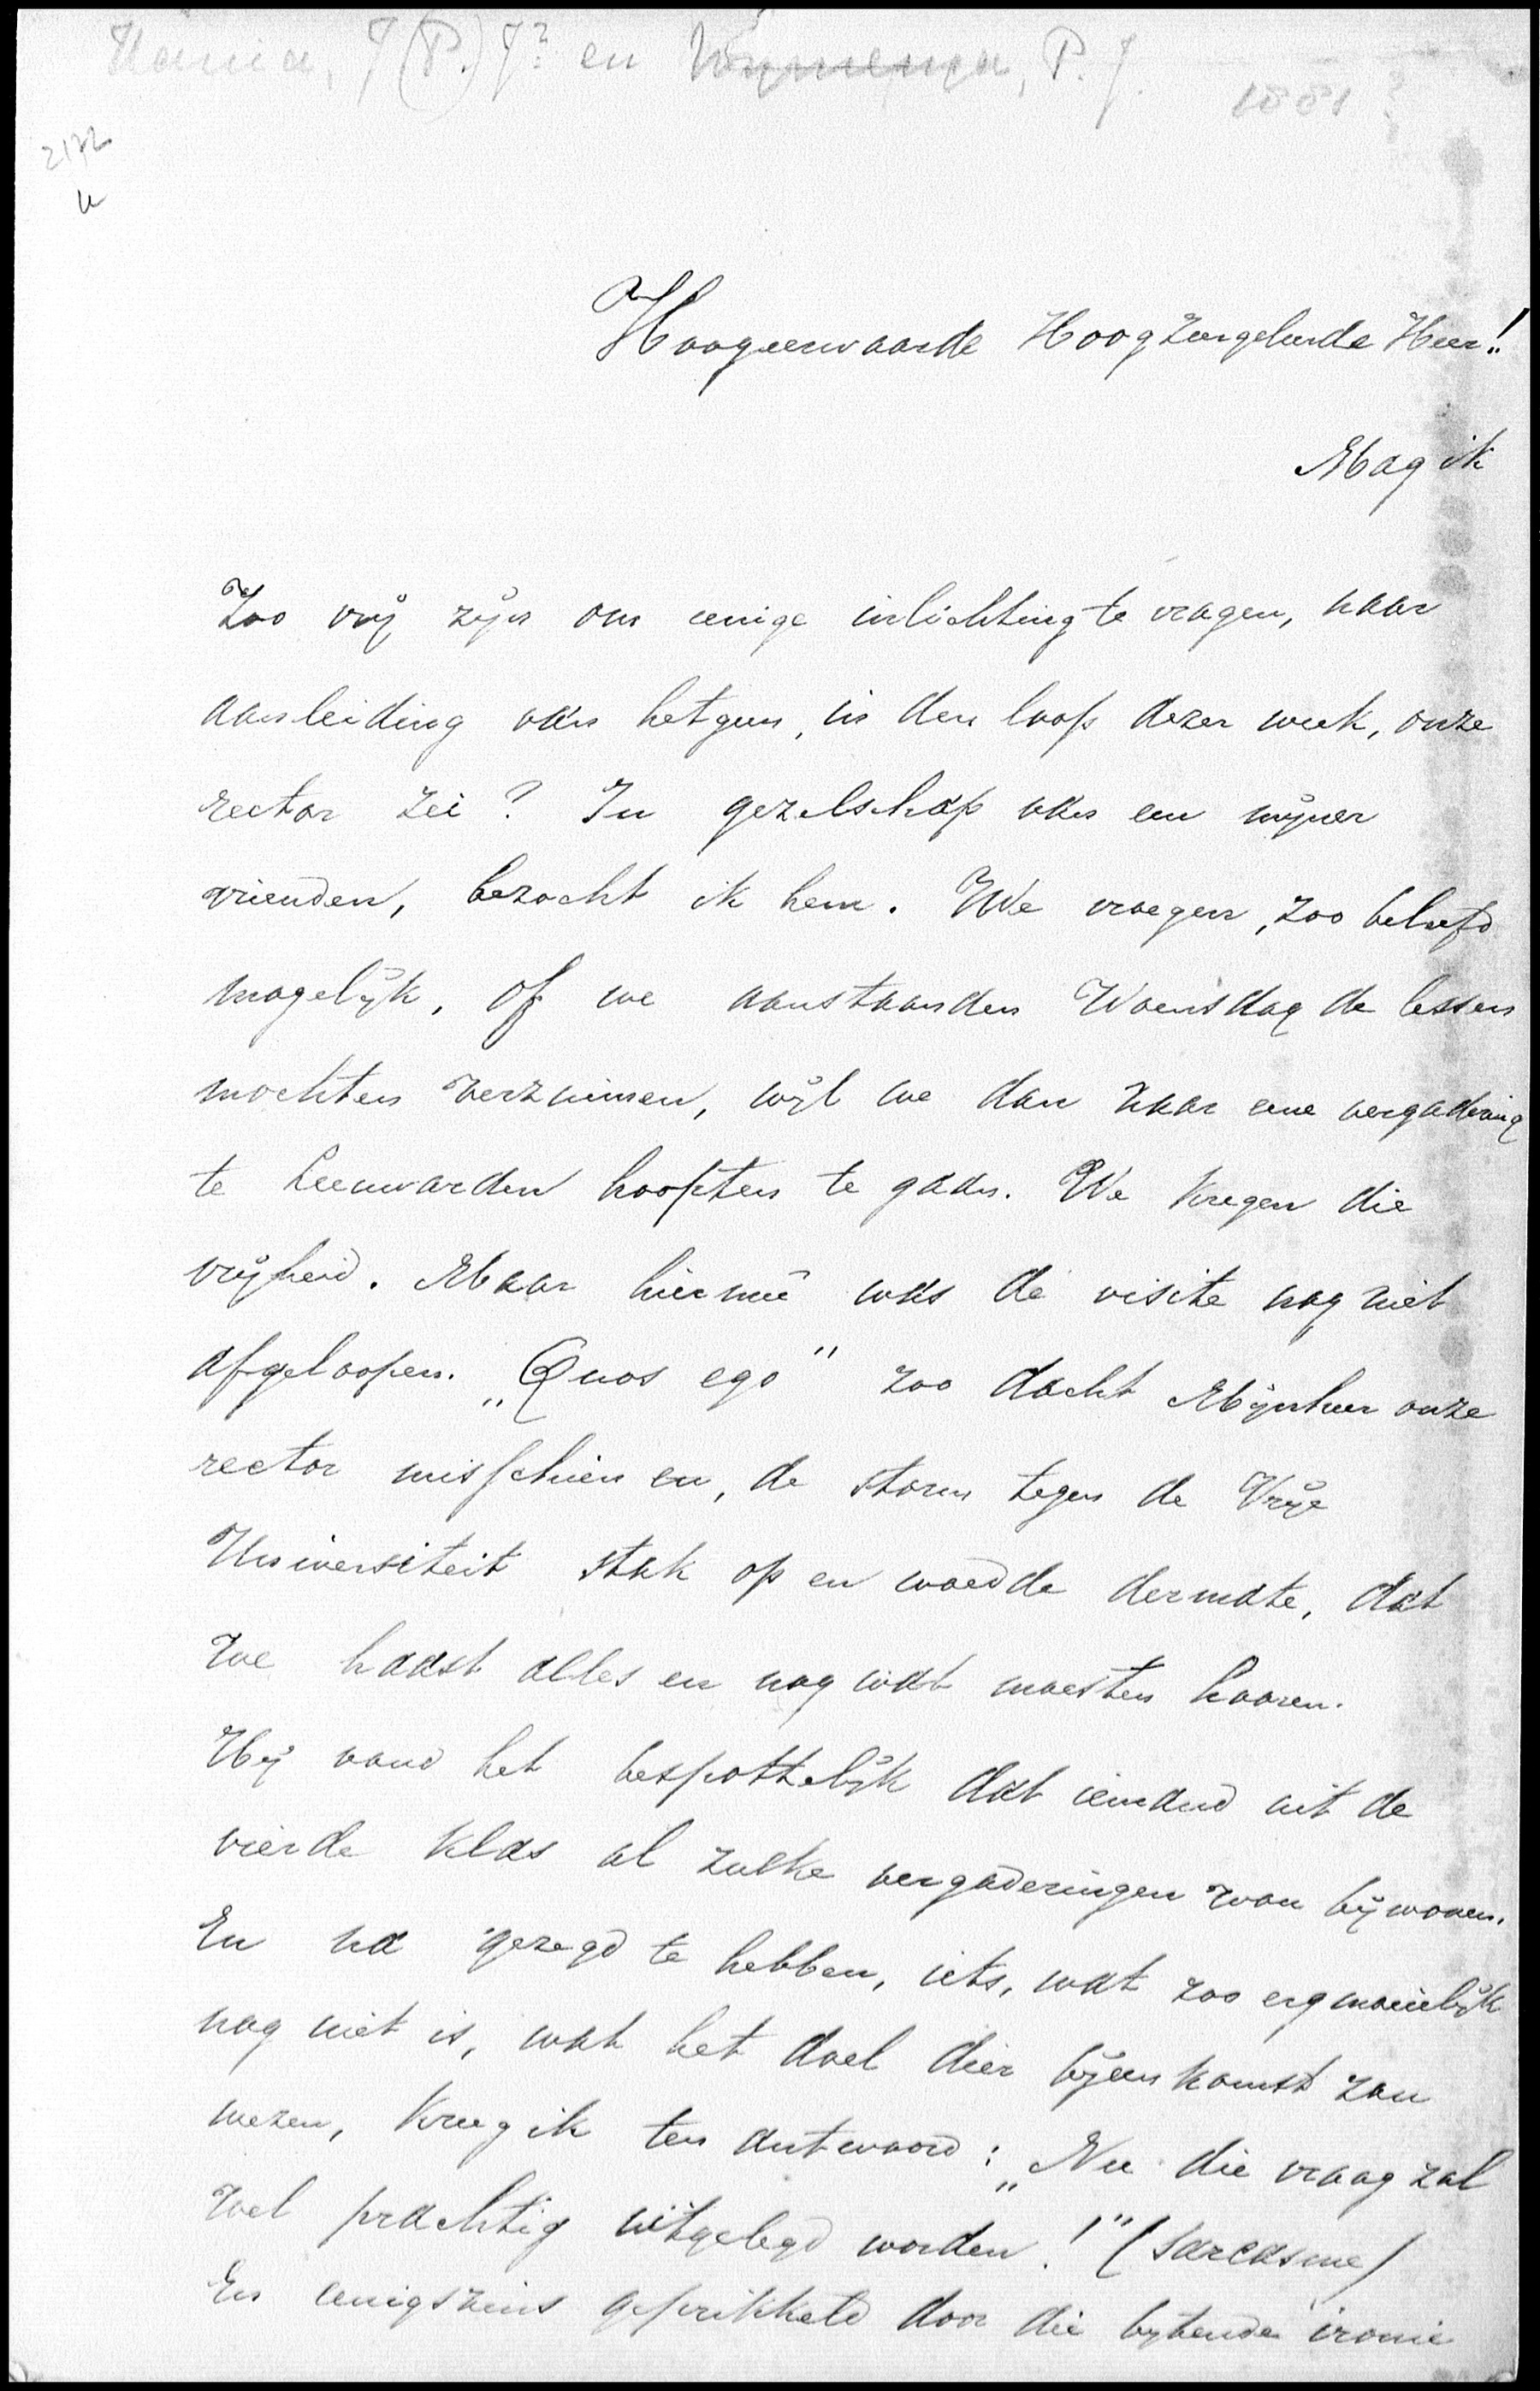 J (P.) Jz en Wymenga, P. J.
1881?
2172
Hoogeerwaarde Hoogzeergeleerde Heer!!
Mag ik
Zoo vrij zijn om eenige inlichting te vragen, naar
aanleiding van hetgeen, in den loop dezer week, onze
rector zei? In gezelschap van een mijner
vrienden, bezocht ik hem. We vroegen, zoo beleefd
mogelijk, of we aanstaanden Woensdag de lessen
mochten verzuimen, wijl we dan naar eene vergadering
te Leeuwarden hoopten te gaan. We kregen die
vrijheid. Maar hiermeê was de visite nog niet
afgeloopen. „Quos ego" zoo dacht Mijnheer onze
rector misschien en, de storm tegen de Vrije
Universiteit stak op en woedde dermate, dat
we haast alles en nog wat moesten hooren.
Hij vond het bespottelijk dat iemand uit de
vierde klas al zulke vergaderingen wou bijwonen.
En na gezegd te hebben, iets, wat zoo erg moeielijk
nog niet is, wat het doel dier bijeenkomst zou
wezen, kreeg ik ten antwoord: „Nu die vraag zal
wel prachtig uitgelegd worden!" (Sarcasme)
En eenigszins geprikkeld door die bijtende ironie